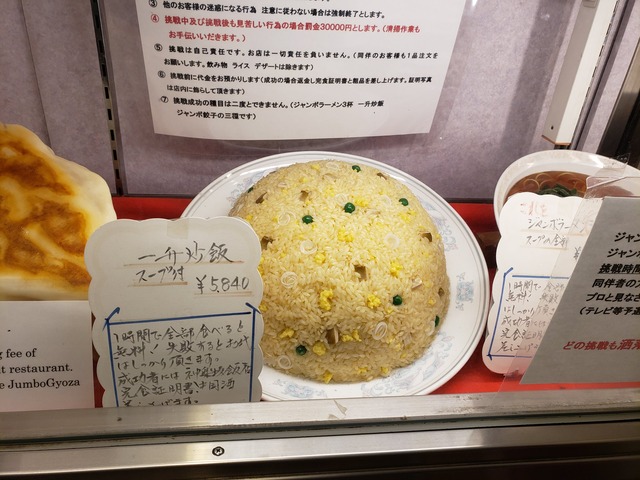 ③ 他のお客様の迷惑になる行為 注意に従わない場合は強制終了とします。
④ 挑戦中及び挑戦後も見苦しい行為の場合罰金30000円とします。(清掃作業も
お手伝いいただきます。)
⑤ 挑戦は自己責任です。お店は一切責任を負いません。(同伴のお客様も1品注文を
お願いします。飲み物 ライス デザートは除きます)
⑥ 挑戦前に代金をお預かりします(成功の場合返金し完食証明書と粗品を差し上げます。証明写真
は店内に飾らして頂きます)
⑦ 挑戦成功の種目は二度とできません。(ジャンボラーメン3杯 一升炒飯
ジャンボ餃子の三種です)
一升炒飯
スープ付
¥5,840
1時間で全部食べると
無料!失敗するとお代
はしっかり頂きます。
成功者には
完食証明書
ng fee of
t restaurant.
e JumboGyoza
ジャンボラーメン
スープの全部
1時間で全
無料!失敗
はしっかり
成功者
完食証
ジャン
ジャン
挑戦時間
同伴者の
プロと見な
(テレビ等予選
どの挑戦も